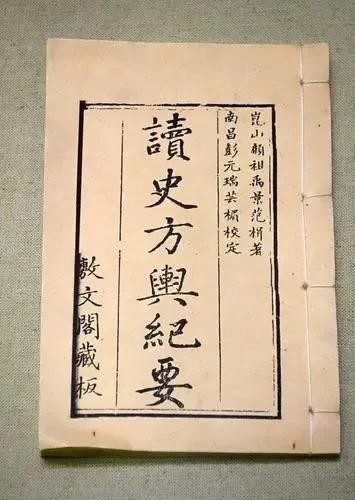 崑山顧祖禹景范輯著
南昌彭元瑞芸楣校定
讀史方輿紀要
敷文閣藏板